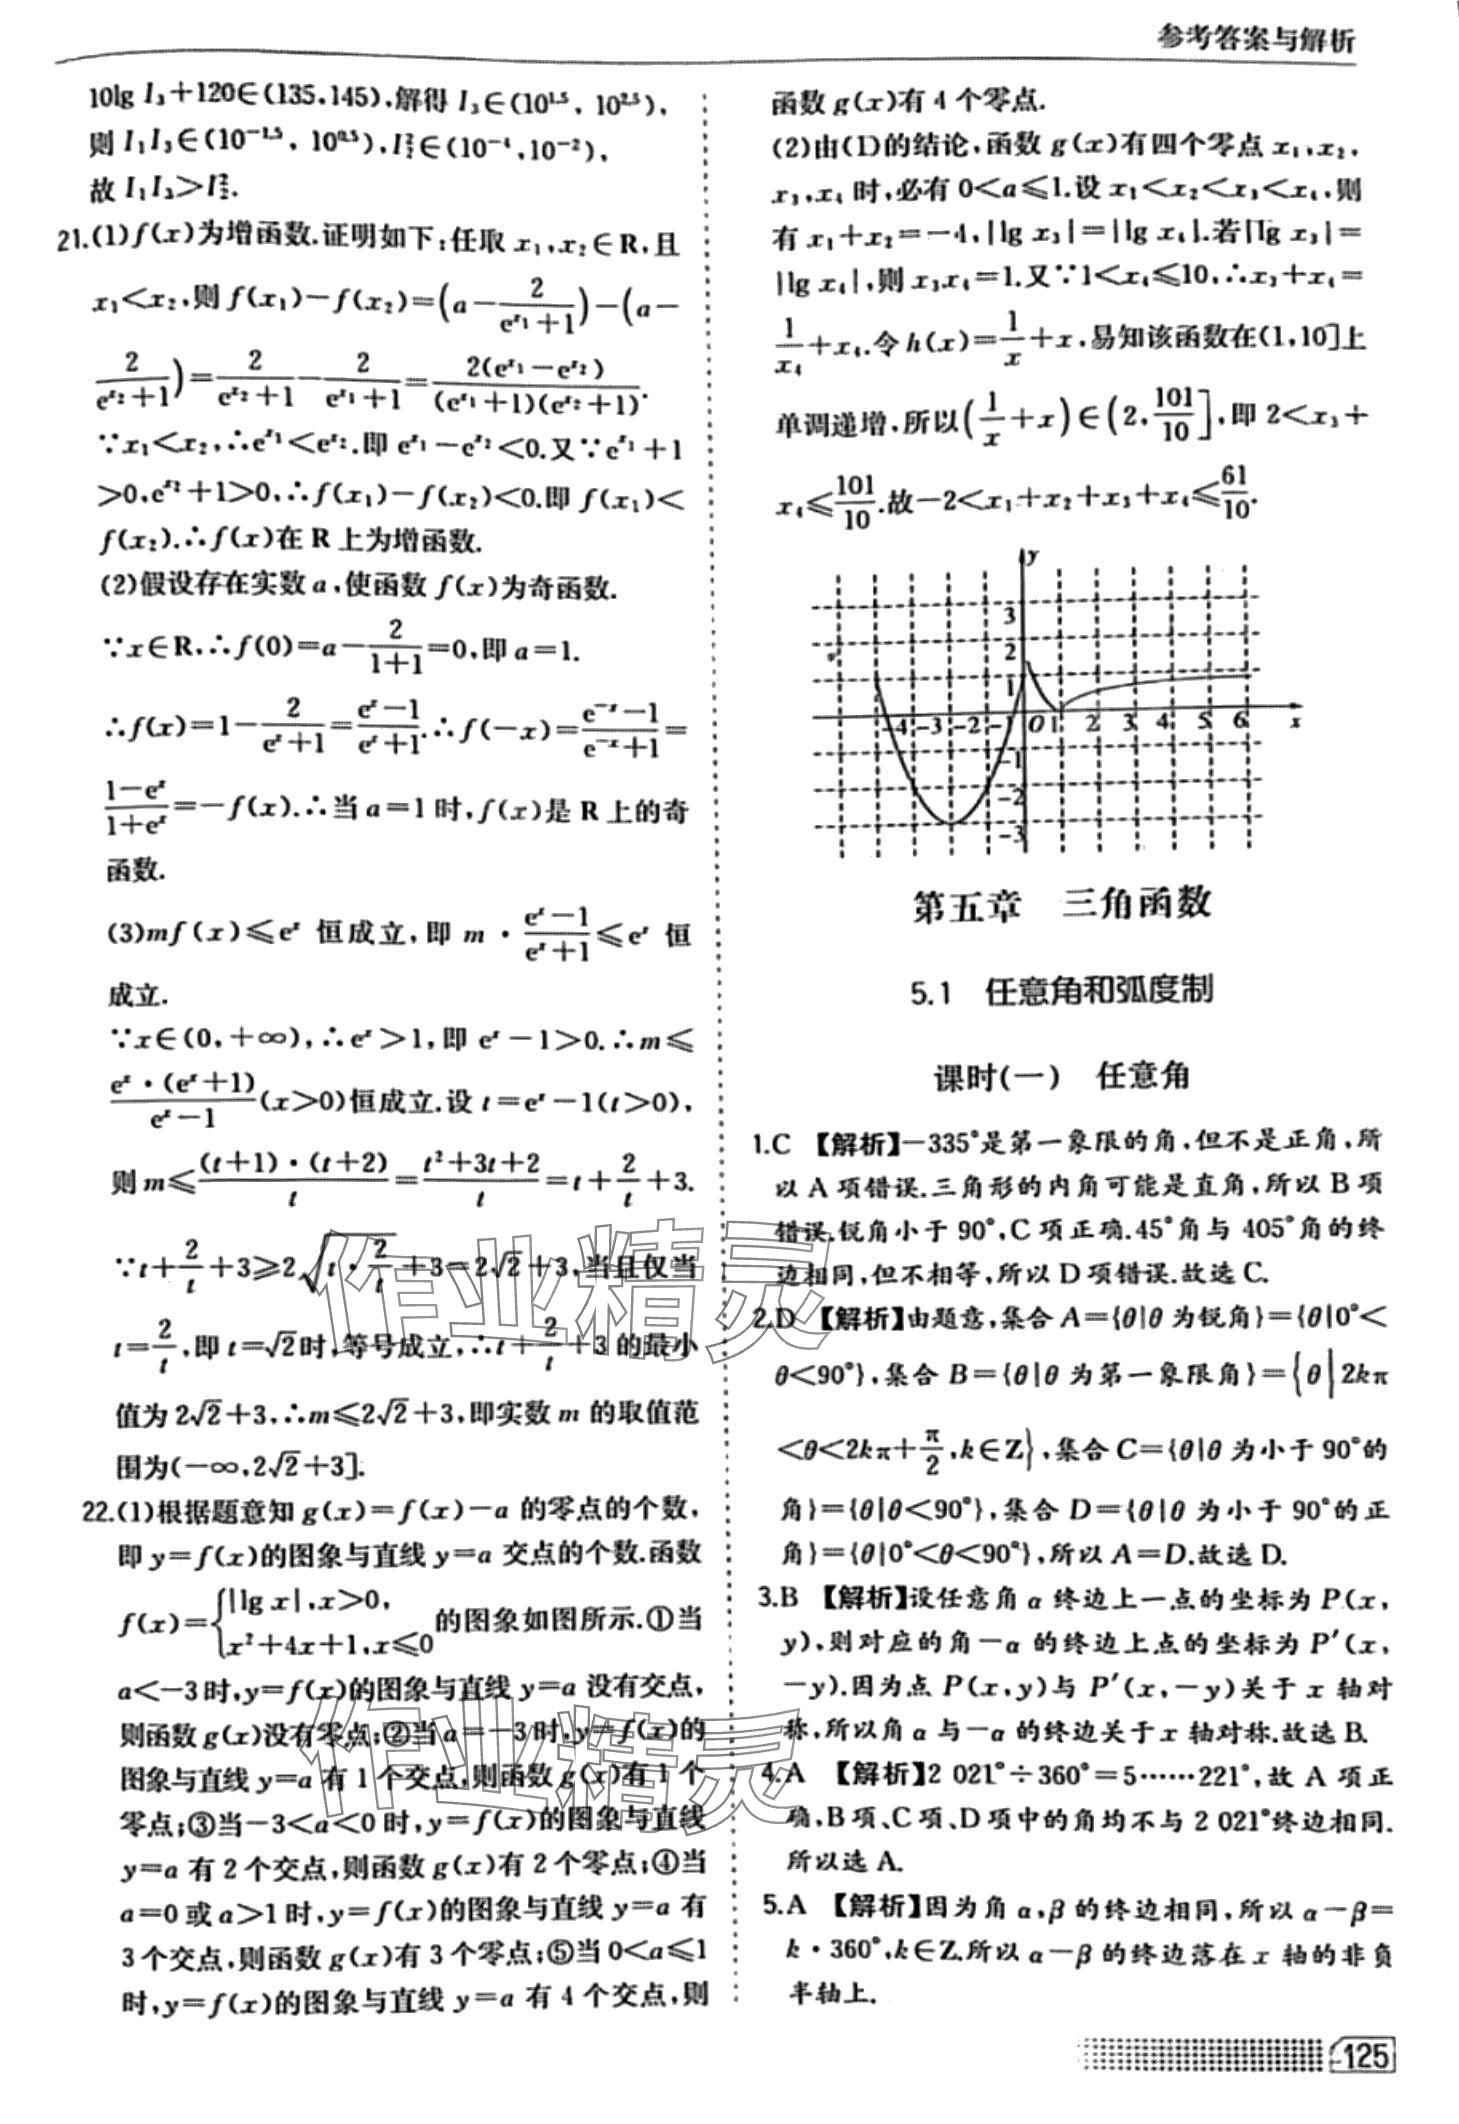 参考答案与解析
10lg I₃+120∈(135,145),解得 I₃∈(10^1.5, 10^2.5),
则 I₁I₃∈(10^-1.5, 10^0.5),I₂²∈(10^-4,10^-2),
故 I₁I₃>I₂².
21.(1)f(x)为增函数.证明如下:任取 x₁,x₂∈R,且
x₁<x₂,则 f(x₁)-f(x₂)=(a-2/(e^x₁+1))-(a-
2/(e^x₂+1))=2/(e^x₂+1)-2/(e^x₁+1)=2(e^x₁-e^x₂)/((e^x₁+1)(e^x₂+1)).
∵x₁<x₂,∴e^x₁<e^x₂.即 e^x₁-e^x₂<0.又∵e^x₁+1
>0,e^x₂+1>0,∴f(x₁)-f(x₂)<0.即 f(x₁)<
f(x₂).∴f(x)在 R 上为增函数.
(2)假设存在实数 a,使函数 f(x)为奇函数.
∵x∈R,∴f(0)=a-2/(1+1)=0,即 a=1.
∴f(x)=1-2/(e^x+1)=(e^x-1)/(e^x+1).∴f(-x)=(e^-x-1)/(e^-x+1)=
(1-e^x)/(1+e^x)=-f(x).∴当 a=1 时,f(x)是 R 上的奇
函数.
(3)mf(x)≤e^x 恒成立,即 m·(e^x-1)/(e^x+1)≤e^x 恒
成立.
∵x∈(0,+∞),∴e^x>1,即 e^x-1>0.∴m≤
e^x·(e^x+1)/(e^x-1)(x>0)恒成立.设 t=e^x-1(t>0),
则 m≤(t+1)·(t+2)/t=(t²+3t+2)/t=t+2/t+3.
∵t+2/t+3≥2√(t·2/t)+3=2√2+3,当且仅当
t=2/t,即 t=√2时,等号成立,∴t+2/t+3 的最小
值为 2√2+3,∴m≤2√2+3,即实数 m 的取值范
围为(-∞,2√2+3].
22.(1)根据题意知 g(x)=f(x)-a 的零点的个数,
即 y=f(x)的图象与直线 y=a 交点的个数.函数
f(x)={|lg x|,x>0, x²+4x+1,x≤0 的图象如图所示.①当
a<-3 时,y=f(x)的图象与直线 y=a 没有交点,
则函数 g(x)没有零点;②当 a=-3 时,y=f(x)的
图象与直线 y=a 有 1 个交点,则函数 g(x)有 1 个
零点;③当-3<a<0 时,y=f(x)的图象与直线
y=a 有 2 个交点,则函数 g(x)有 2 个零点;④当
a=0 或 a>1 时,y=f(x)的图象与直线 y=a 有
3 个交点,则函数 g(x)有 3 个零点;⑤当 0<a≤1
时,y=f(x)的图象与直线 y=a 有 4 个交点,则
函数 g(x)有 4 个零点.
(2)由(1)的结论,函数 g(x)有四个零点 x₁,x₂,
x₃,x₄ 时,必有 0<a≤1.设 x₁<x₂<x₃<x₄,则
有 x₁+x₂=-4,|lg x₃|=|lg x₄|.若|lg x₃|=
|lg x₄|,则 x₃x₄=1.又∵1<x₄≤10,∴x₃+x₄=
1/x₄+x₄.令 h(x)=1/x+x,易知该函数在(1,10]上
单调递增,所以(1/x+x)∈(2,101/10],即 2<x₃+
x₄≤101/10.故-2<x₁+x₂+x₃+x₄≤61/10.
y
3
2
1
-4 -3 -2 -1 O 1 2 3 4 5 6 x
-1
-2
-3
第五章 三角函数
5.1 任意角和弧度制
课时(一) 任意角
1.C 【解析】-335°是第一象限的角,但不是正角,所
以 A 项错误.三角形的内角可能是直角,所以 B 项
错误.锐角小于 90°,C 项正确.45°角与 405°角的终
边相同,但不相等,所以 D 项错误.故选 C.
2.D 【解析】由题意,集合 A={θ|θ 为锐角}={θ|0°<
θ<90°},集合 B={θ|θ 为第一象限角}={θ|2kπ
<θ<2kπ+π/2,k∈Z},集合 C={θ|θ 为小于 90°的
角}={θ|θ<90°},集合 D={θ|θ 为小于 90°的正
角}={θ|0°<θ<90°},所以 A=D.故选 D.
3.B 【解析】设任意角 α 终边上一点的坐标为 P(x,
y),则对应的角-α 的终边上点的坐标为 P′(x,
-y).因为点 P(x,y)与 P′(x,-y)关于 x 轴对
称,所以角 α 与-α 的终边关于 x 轴对称.故选 B.
4.A 【解析】2 021°÷360°=5……221°,故 A 项正
确,B 项、C 项、D 项中的角均不与 2 021°终边相同.
所以选 A.
5.A 【解析】因为角 α,β 的终边相同,所以 α-β=
k·360°,k∈Z.所以 α-β 的终边落在 x 轴的非负
半轴上.
125
作业精灵
作业精灵